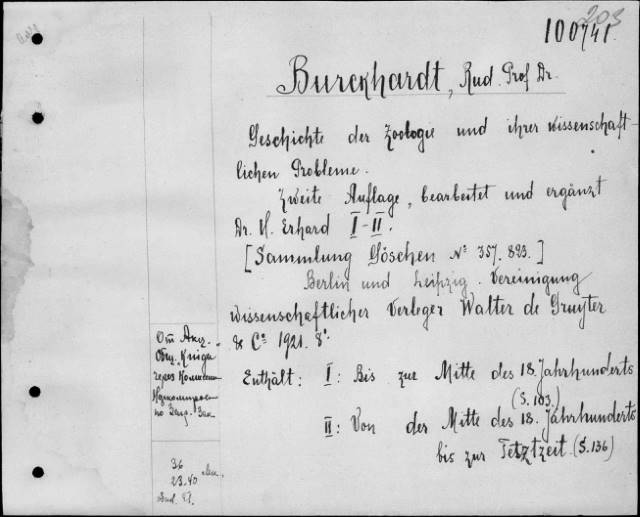 203
100741.
Burckhardt, Rud. Prof Dr.
Geschichte der Zoologie und ihrer wissenschaft-
lichen Probleme.
Zweite Auflage, bearbeitet und ergänzt
Dr. H. Erhard I-II.
[Sammlung Göschen № 357. 823.]
Berlin und Leipzig. Vereinigung
wissenschaftlicher Verleger Walter de Gruyter
& Co 1921. 8°.
Enthält: I: Bis zur Mitte des 18. Jahrhunderts
(S. 103.)
II: Von der Mitte des 18. Jahrhunderts
bis zur Jetztzeit. (S. 136)
От Акц.
Общ. Книга
через Комисси
по Загр. Зак
36
23.40